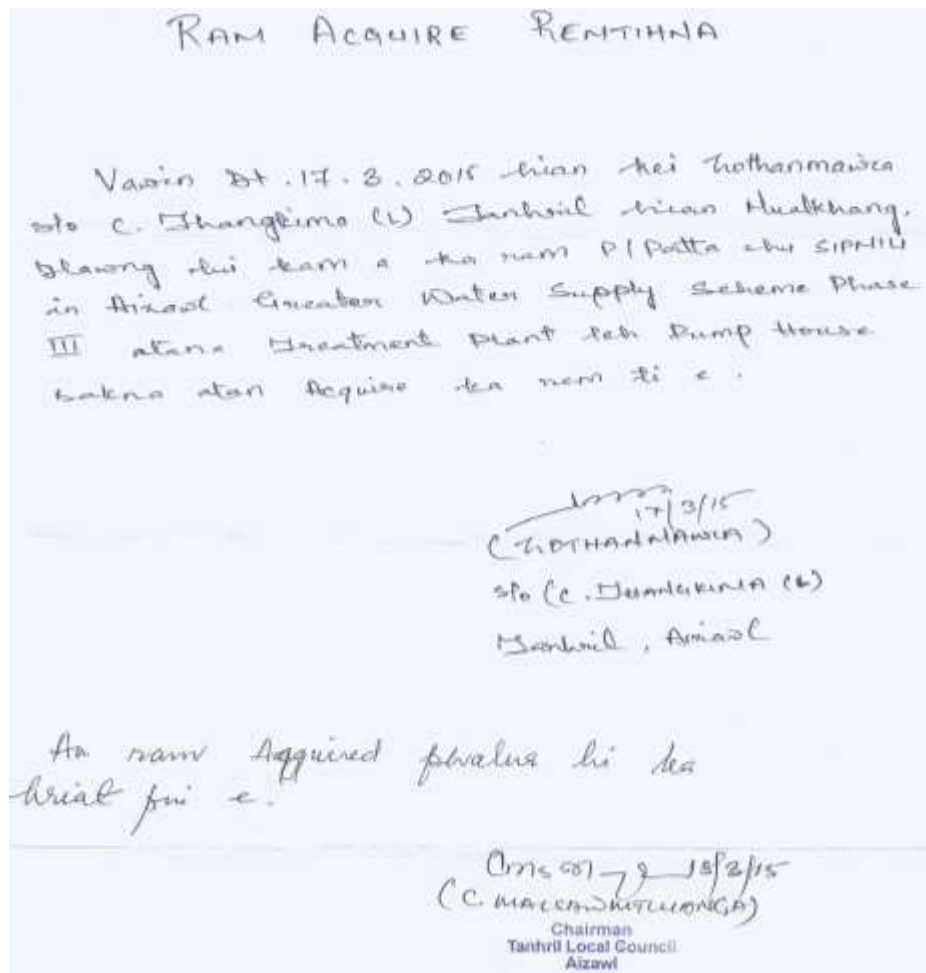 RAM ACQUIRE REMTIHNA
Vawin Dt. 17.3.2015 hian kei Lothanmawia
s/o C. Thangkima (L) Tanhril hian Hualkhang,
Tlawng lui kam a ka ram P/Patta chu SIPMIU
in Aizawl Greater Water Supply Scheme Phase
III atana Treatment Plant leh Pump House
sakna atan Acquire ka rem ti e.
17/3/15
(LOTHANMAWIA)
s/o (C. THANGKIMA (L)
Tanhril, Aizawl
An ram Aqquired phalna hi ka
hriat pui e.
18/3/15
Chairman
Tanhril Local Council
Aizawl